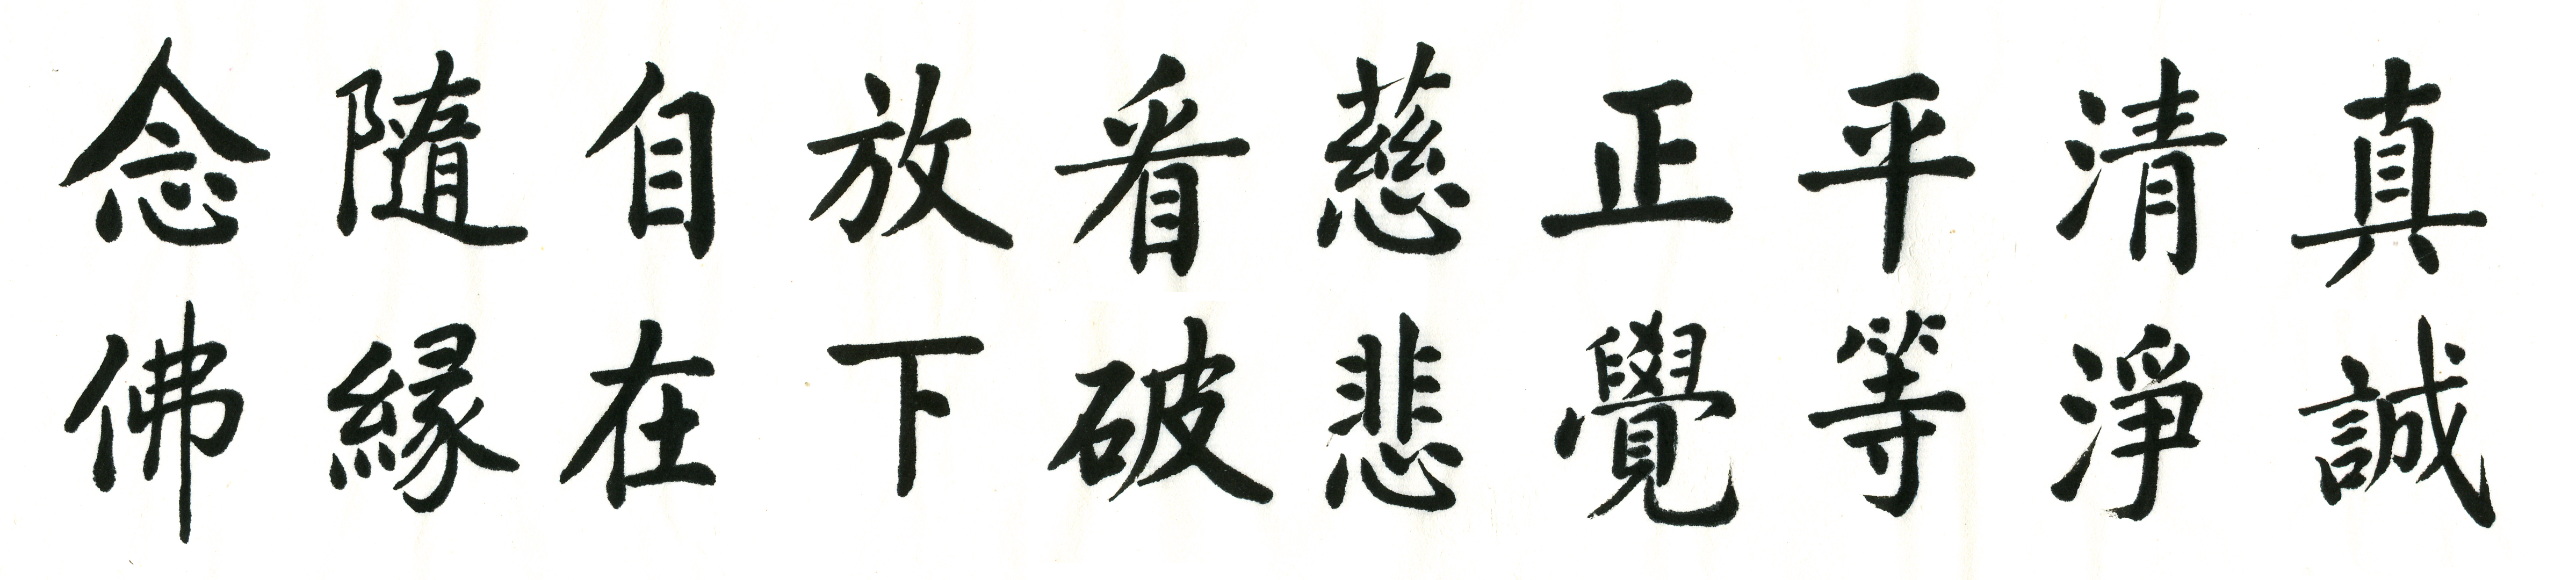 真誠
清淨
平等
正覺
慈悲
看破
放下
自在
隨緣
念佛